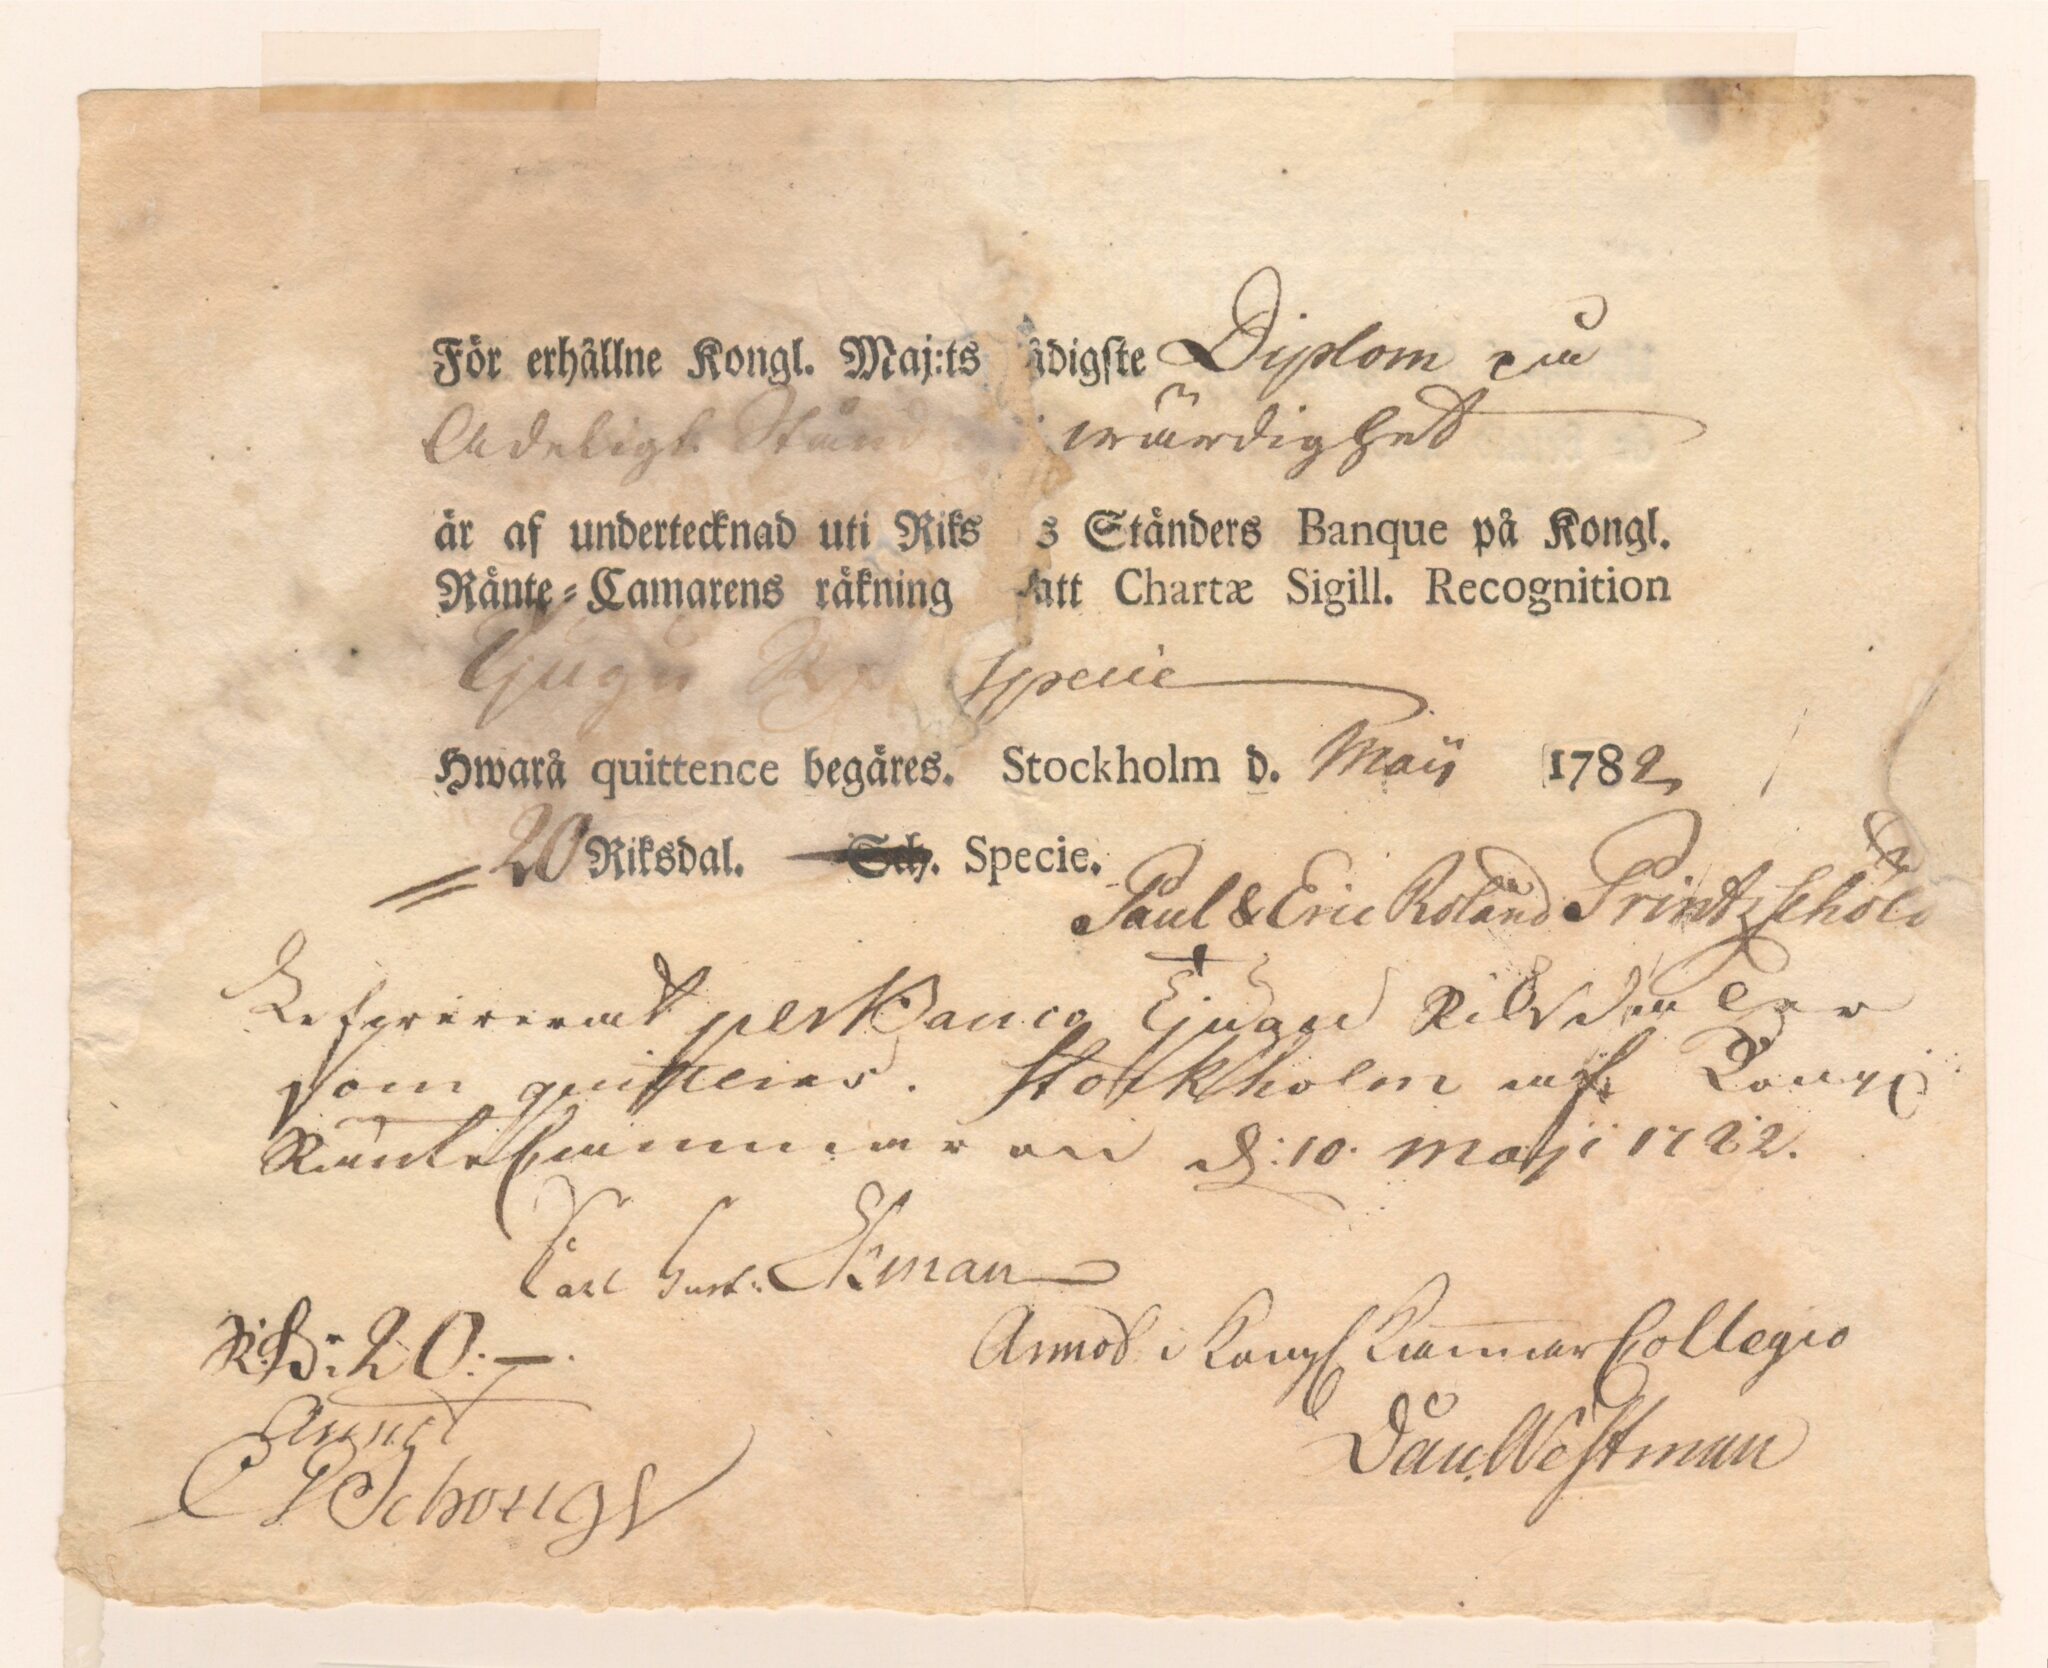 För erhållne Kongl. Maj:ts ådigste Diplom på
Adeligt Stånd wärdighet
är af undertecknad uti Riks s Ständers Banque på Kongl.
Ränte-Camarens räkning satt Chartæ Sigill. Recognition
Tjugu Rd Specie
Hwarå quittence begäres. Stockholm d. Maij 1782
20 Riksdal. Sch. Specie.
Paul & Eric Roland Printzschöld
Lefvererat per Banco Tjugu Riksdaler
som quitteras. Stockholm af Kongl
Räntekammaren d: 10. Maji 1782.
Carl Gust: Ekman
R:d: 20.
Annot
Schough
Annot i Kongl Kammar Collegio
Dan. Westman